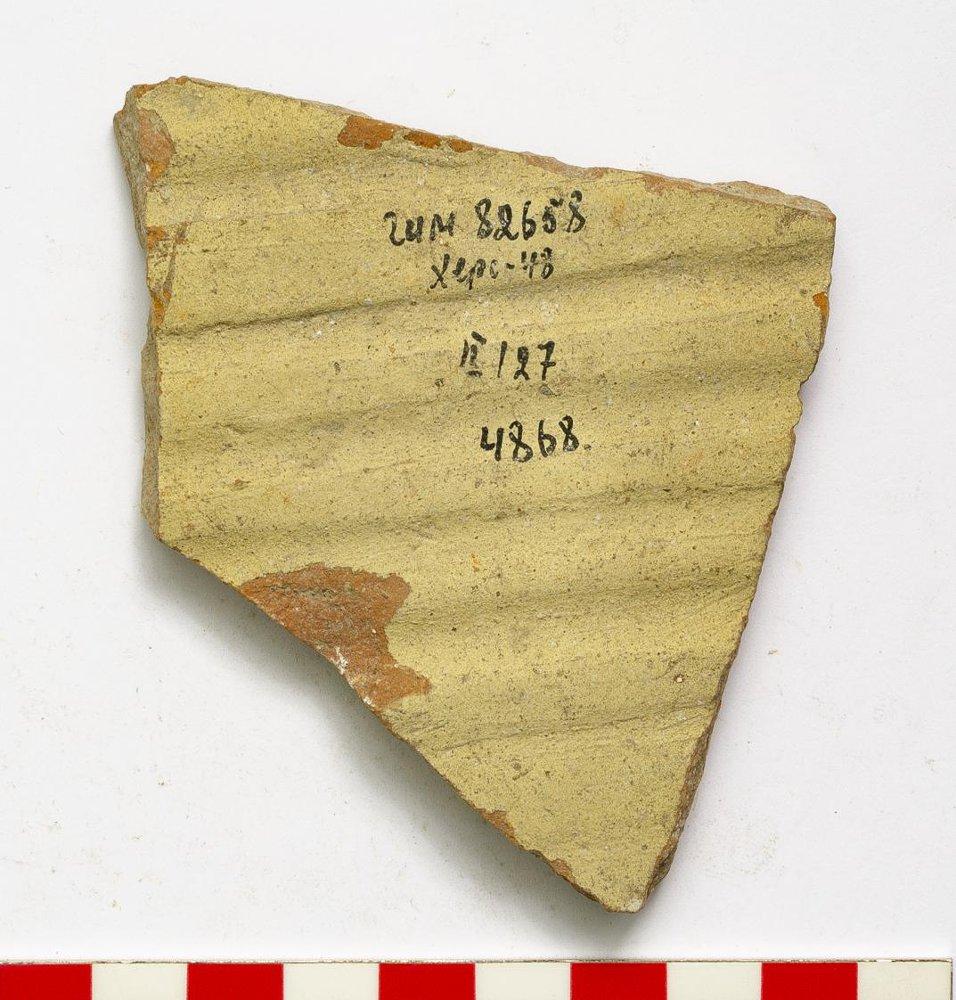 гим 82658
Херс-48
II 127
4868.